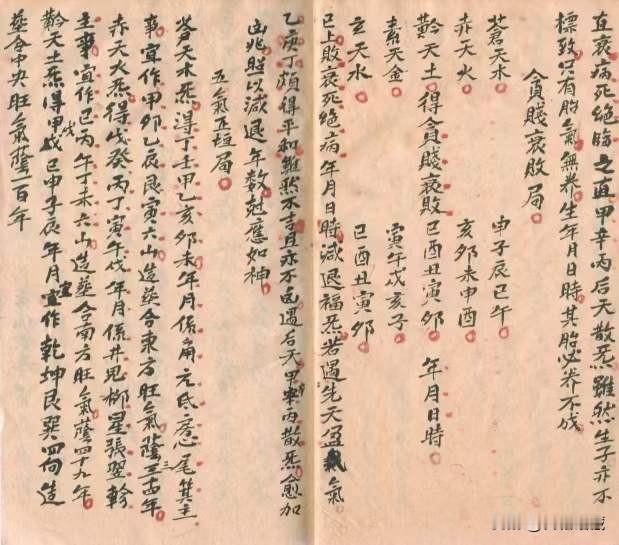 直衰病死絕臨之直甲辛丙后天散炁雖然生子亦不
標致只有胎氣無养生年月日時其胎必养不成
貪賤衰敗局
蒼天木 申子辰巳午
赤天火 亥卯未申酉
黅天土 得貪賤衰敗 巳酉丑寅卯 年月日時
素天金 寅午戌亥子
玄天水 巳酉丑寅卯
已上敗衰死絕病年月日時減退福炁若遇先天盈氣
乙庚丁頗得平和雖然不吉且亦不凶遇后天甲辛丙散炁愈加
凶兆照以減退年数尅應如神
五氣五垣局
蒼天木炁得丁壬甲乙亥卯未年月係角亢氐房心尾箕主
事宜作甲卯乙辰艮寅六山造葬合東方旺氣蔭三十四年
赤天火炁得戊癸丙丁寅午戌年月係井鬼柳星張翌軫
主事宜作巳丙午丁未六山造葬合南方旺氣蔭四十九年
黅天土炁得甲戊巳申子辰年月宜作乾坤艮巽四向造
葬合中央旺氣蔭一百年